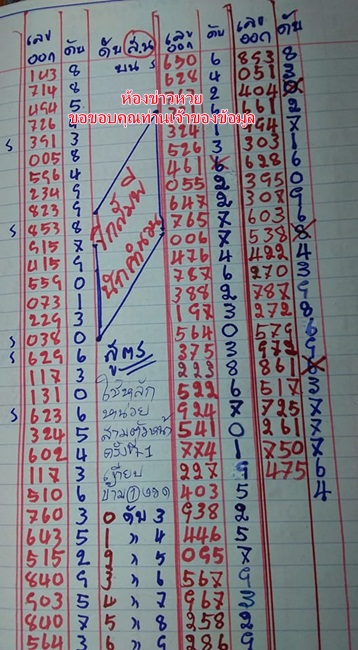 เลข ออก ดับ ดับ ส่วน บน เลข ออก ดับ เลข ออก ดับ
ห้องข่าวหวย
ขอขอบคุณท่านเจ้าของข้อมูล
143 8
714 8
494 5
726 9
391 3
005 8
596 4
234 9
823 9
S 853 8
915 7
415 9
559 0
073 1
229 3
S 038 0
S 629 6
117 3
131 0
S 623 6
324 5
602 4
117 3
510 6
760 3
643 5
515 2
840 9
903 5
840 7
564 3
สูตร
ใช้หลัก
หน่วย
สามตัวหน้า
ครั้งที่ 1
เทียบ
0 ดับ 3
1 " 4
2 " 5
3 " 6
4 " 7
5 " 8
6 " 9
650 6
628 4
324 1
526 3
461 6
055 2
647 2
765 7
006 7
476 4
787 6
388 2
197 3
564 0
375 3
223 8
522 6
924 7
541 0
774 1
227 9
403 5
938 2
446 5
095 7
567 9
967 3
258 2
286 9
853 8
051 3
404
661 2
303 1
628 6
395 0
308 9
603 6
538 8
422 4
270 3
787 9
272 8
579 6
972 9
861 8
517 3
725 7
261 7
750 7
475 6
4